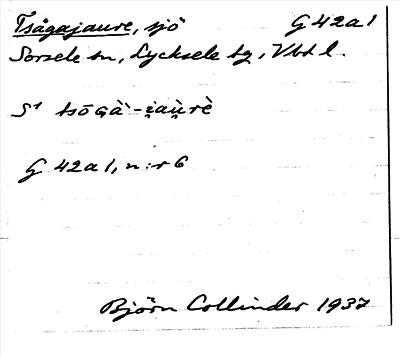 Tsågajaure, sjö G 42a1
Sorsele sn, Lycksele lg, Vbtl.
S¹ tsōGà-i̯au̯rè
G 42a1, n:r 6
Björn Collinder 1937